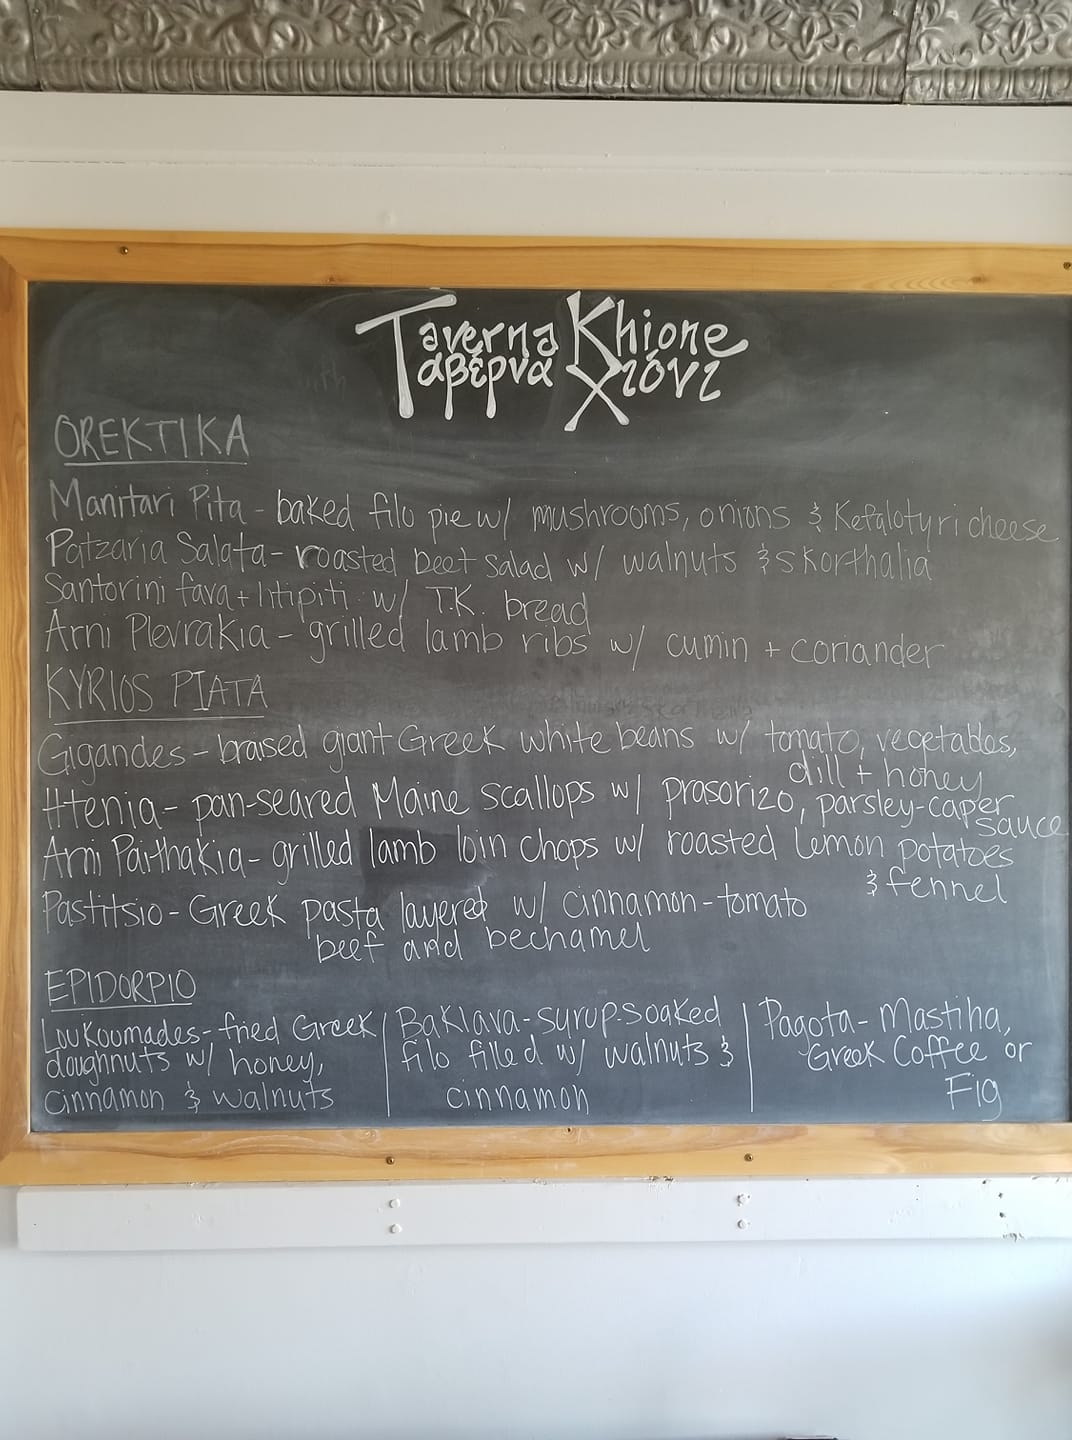 Taverna Khione
Ταβέρνα Χιόνι
OREKTIKA
Manitari Pita - baked filo pie w/ mushrooms, onions & Kefalotyri cheese
Patzaria Salata - roasted beet salad w/ walnuts & skorthalia
Santorini fava + Htipiti w/ T.K. bread
Arni Plevrakia - grilled lamb ribs w/ cumin + coriander
KYRIOS PIATA
Gigandes - braised giant Greek white beans w/ tomato, vegetables,
dill + honey
Htenia - pan-seared Maine scallops w/ prasorizo, parsley-caper
sauce
Arni Paithakia - grilled lamb loin chops w/ roasted lemon potatoes
& fennel
Pastitsio - Greek pasta layered w/ cinnamon-tomato
beef and bechamel
EPIDORPIO
Loukoumades - fried Greek
doughnuts w/ honey,
cinnamon & walnuts
Baklava - syrup-soaked
filo filled w/ walnuts &
cinnamon
Pagota - Mastiha,
Greek Coffee or
Fig